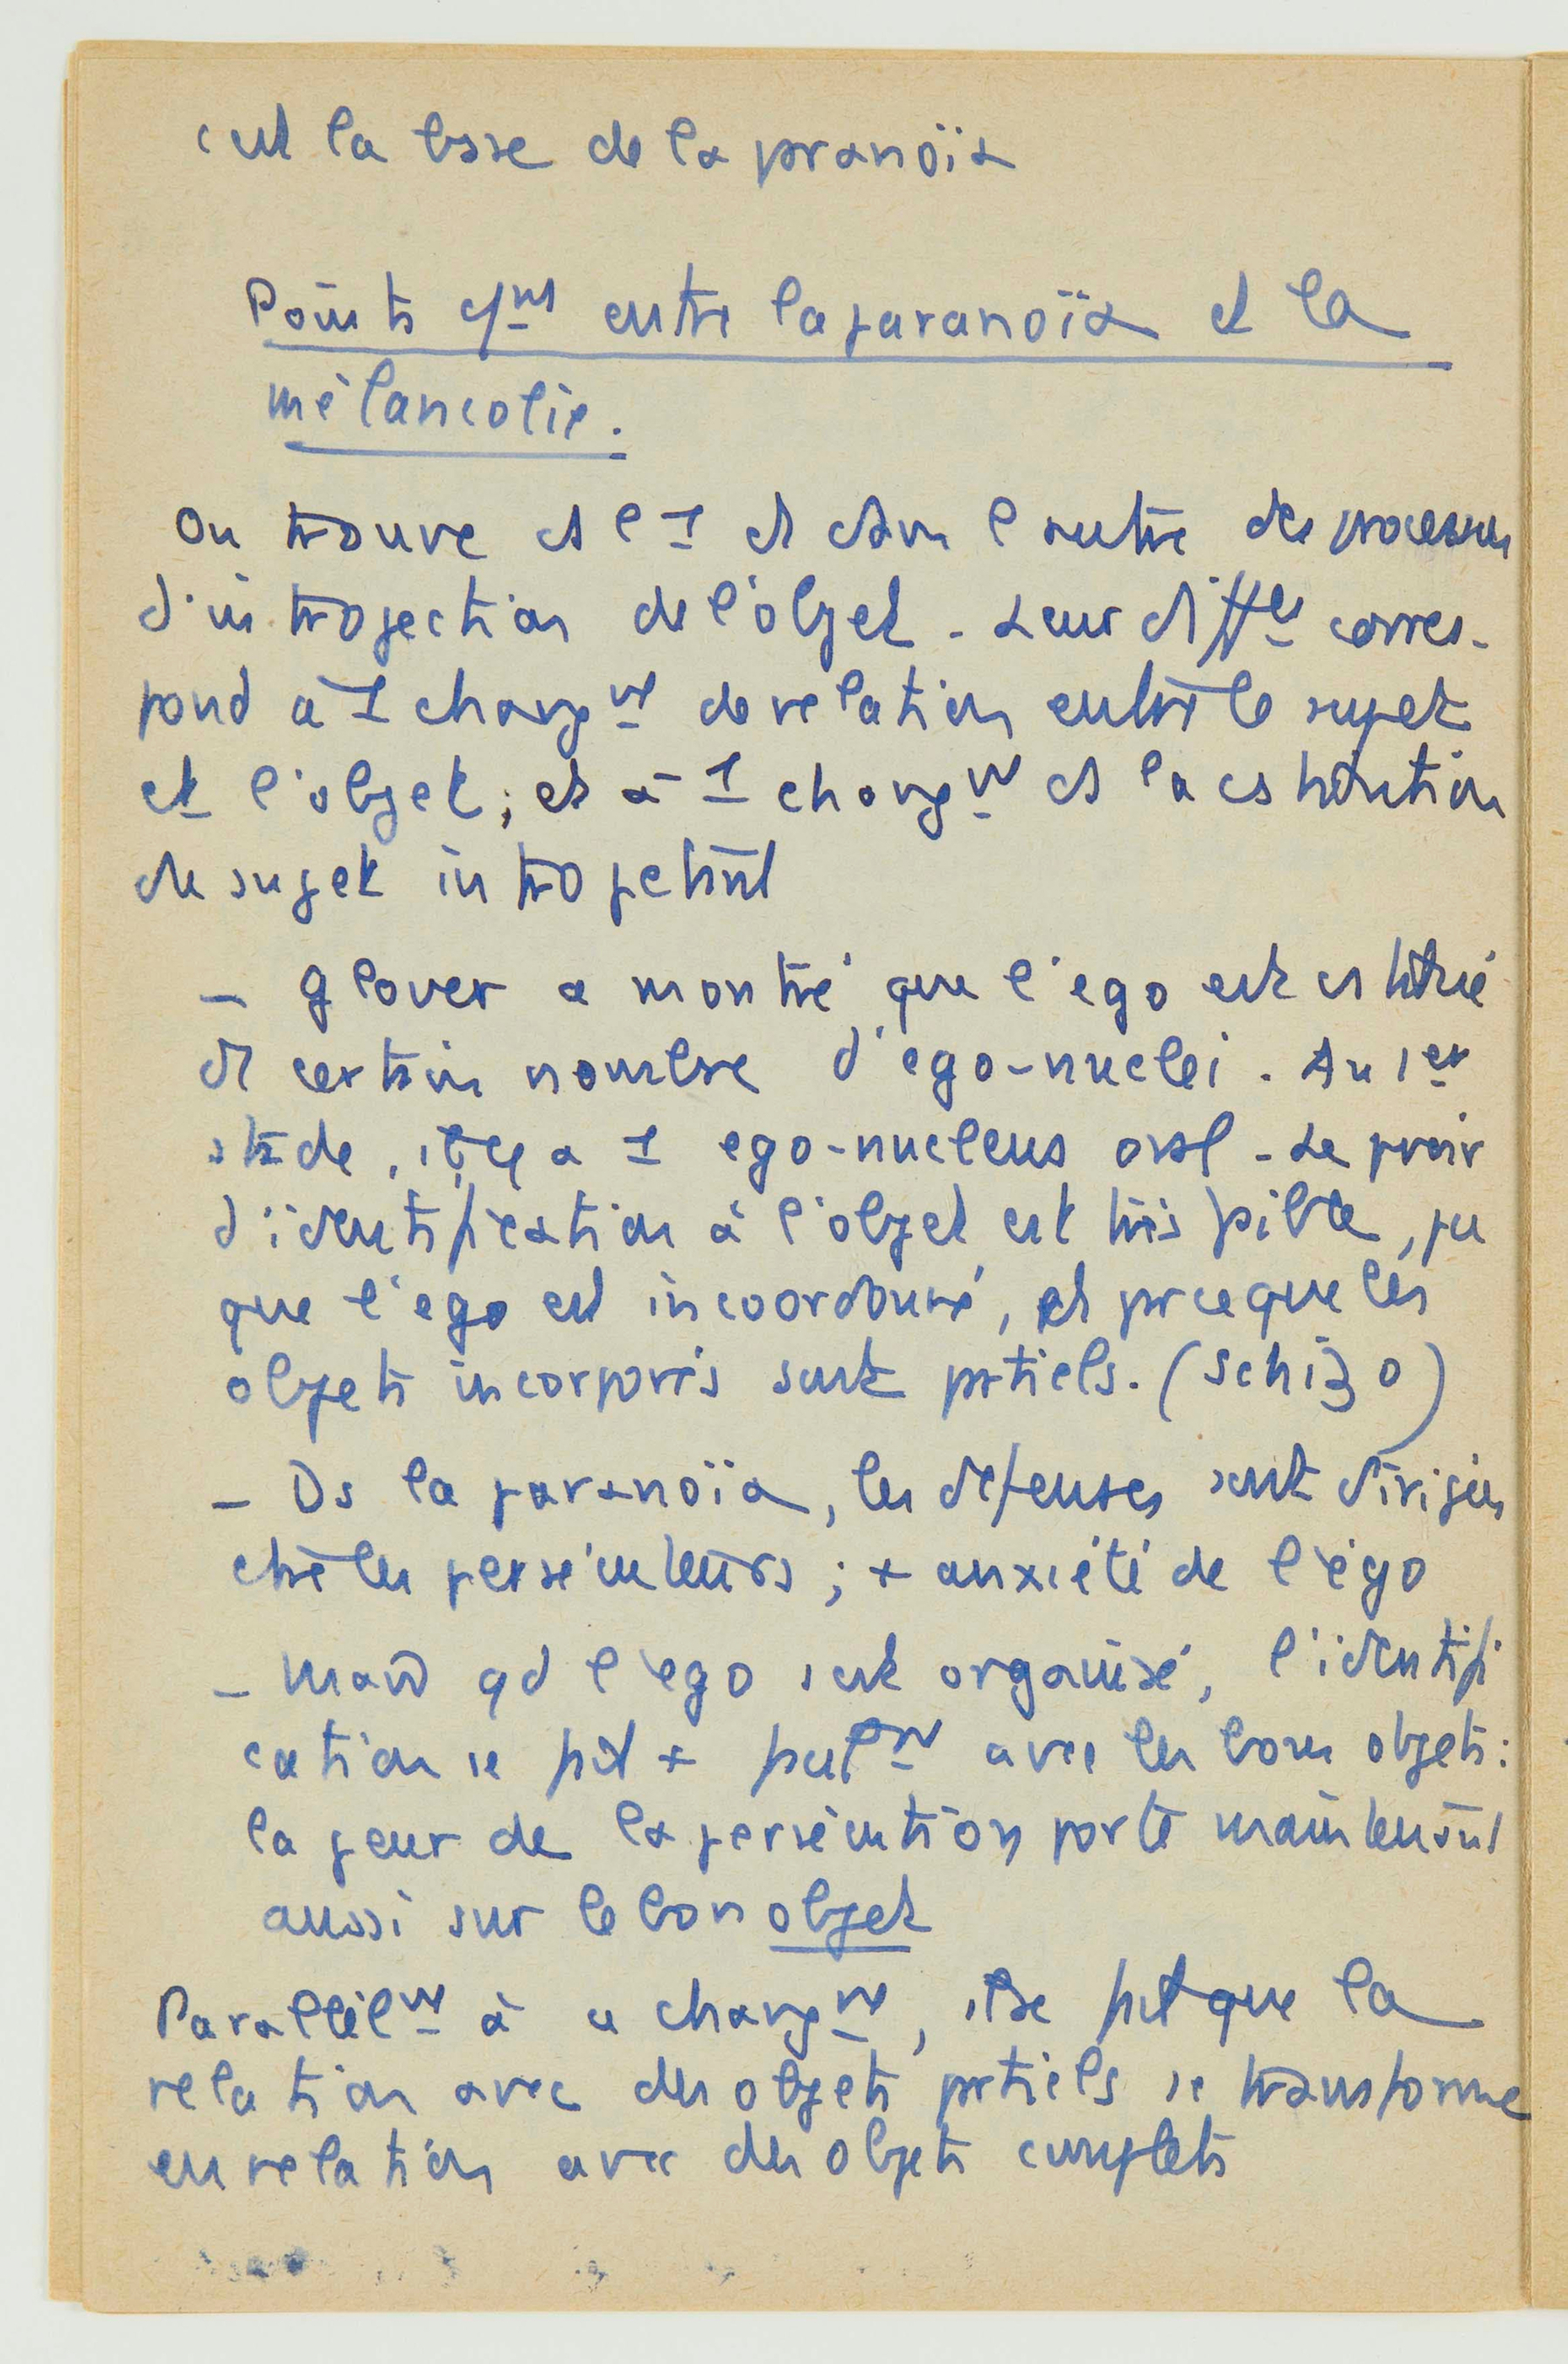 c'est la base de la pranoïa
Points c/ns entre la paranoïa et la
mélancolie.
On trouve ds l'1 et dans l'autre des processus
d'introjection de l'objet. Leur diffce corres-
pond à 1 changnt de relation entre le sujet
et l'objet; et à 1 changnt ds la cstitution
du sujet introjectant
- Glover a montré que l'ego est cstitué
de certain nombre d'ego-nuclei. Au 1er
stade, il y a 1 ego-nucleus oral. Le
d'identification à l'objet est très faible, pce
que l'ego est incoordonné, et prceque les
objets incorporés sont prtiels. (Schizo)
- Ds la paranoïa, les défenses sont dirigées
ctre les persécuteurs; + anxiété de l'ego
- Mais qd l'ego s'est organisé, l'identifi
cation se fait + facilnt avec les bons objets:
la peur de la persécution porte maintenant
aussi sur le bon objet
Parallèlnt à ce changnt, il se fait que la
relation avec des objets prtiels se transforme
en relation avec des objets complets